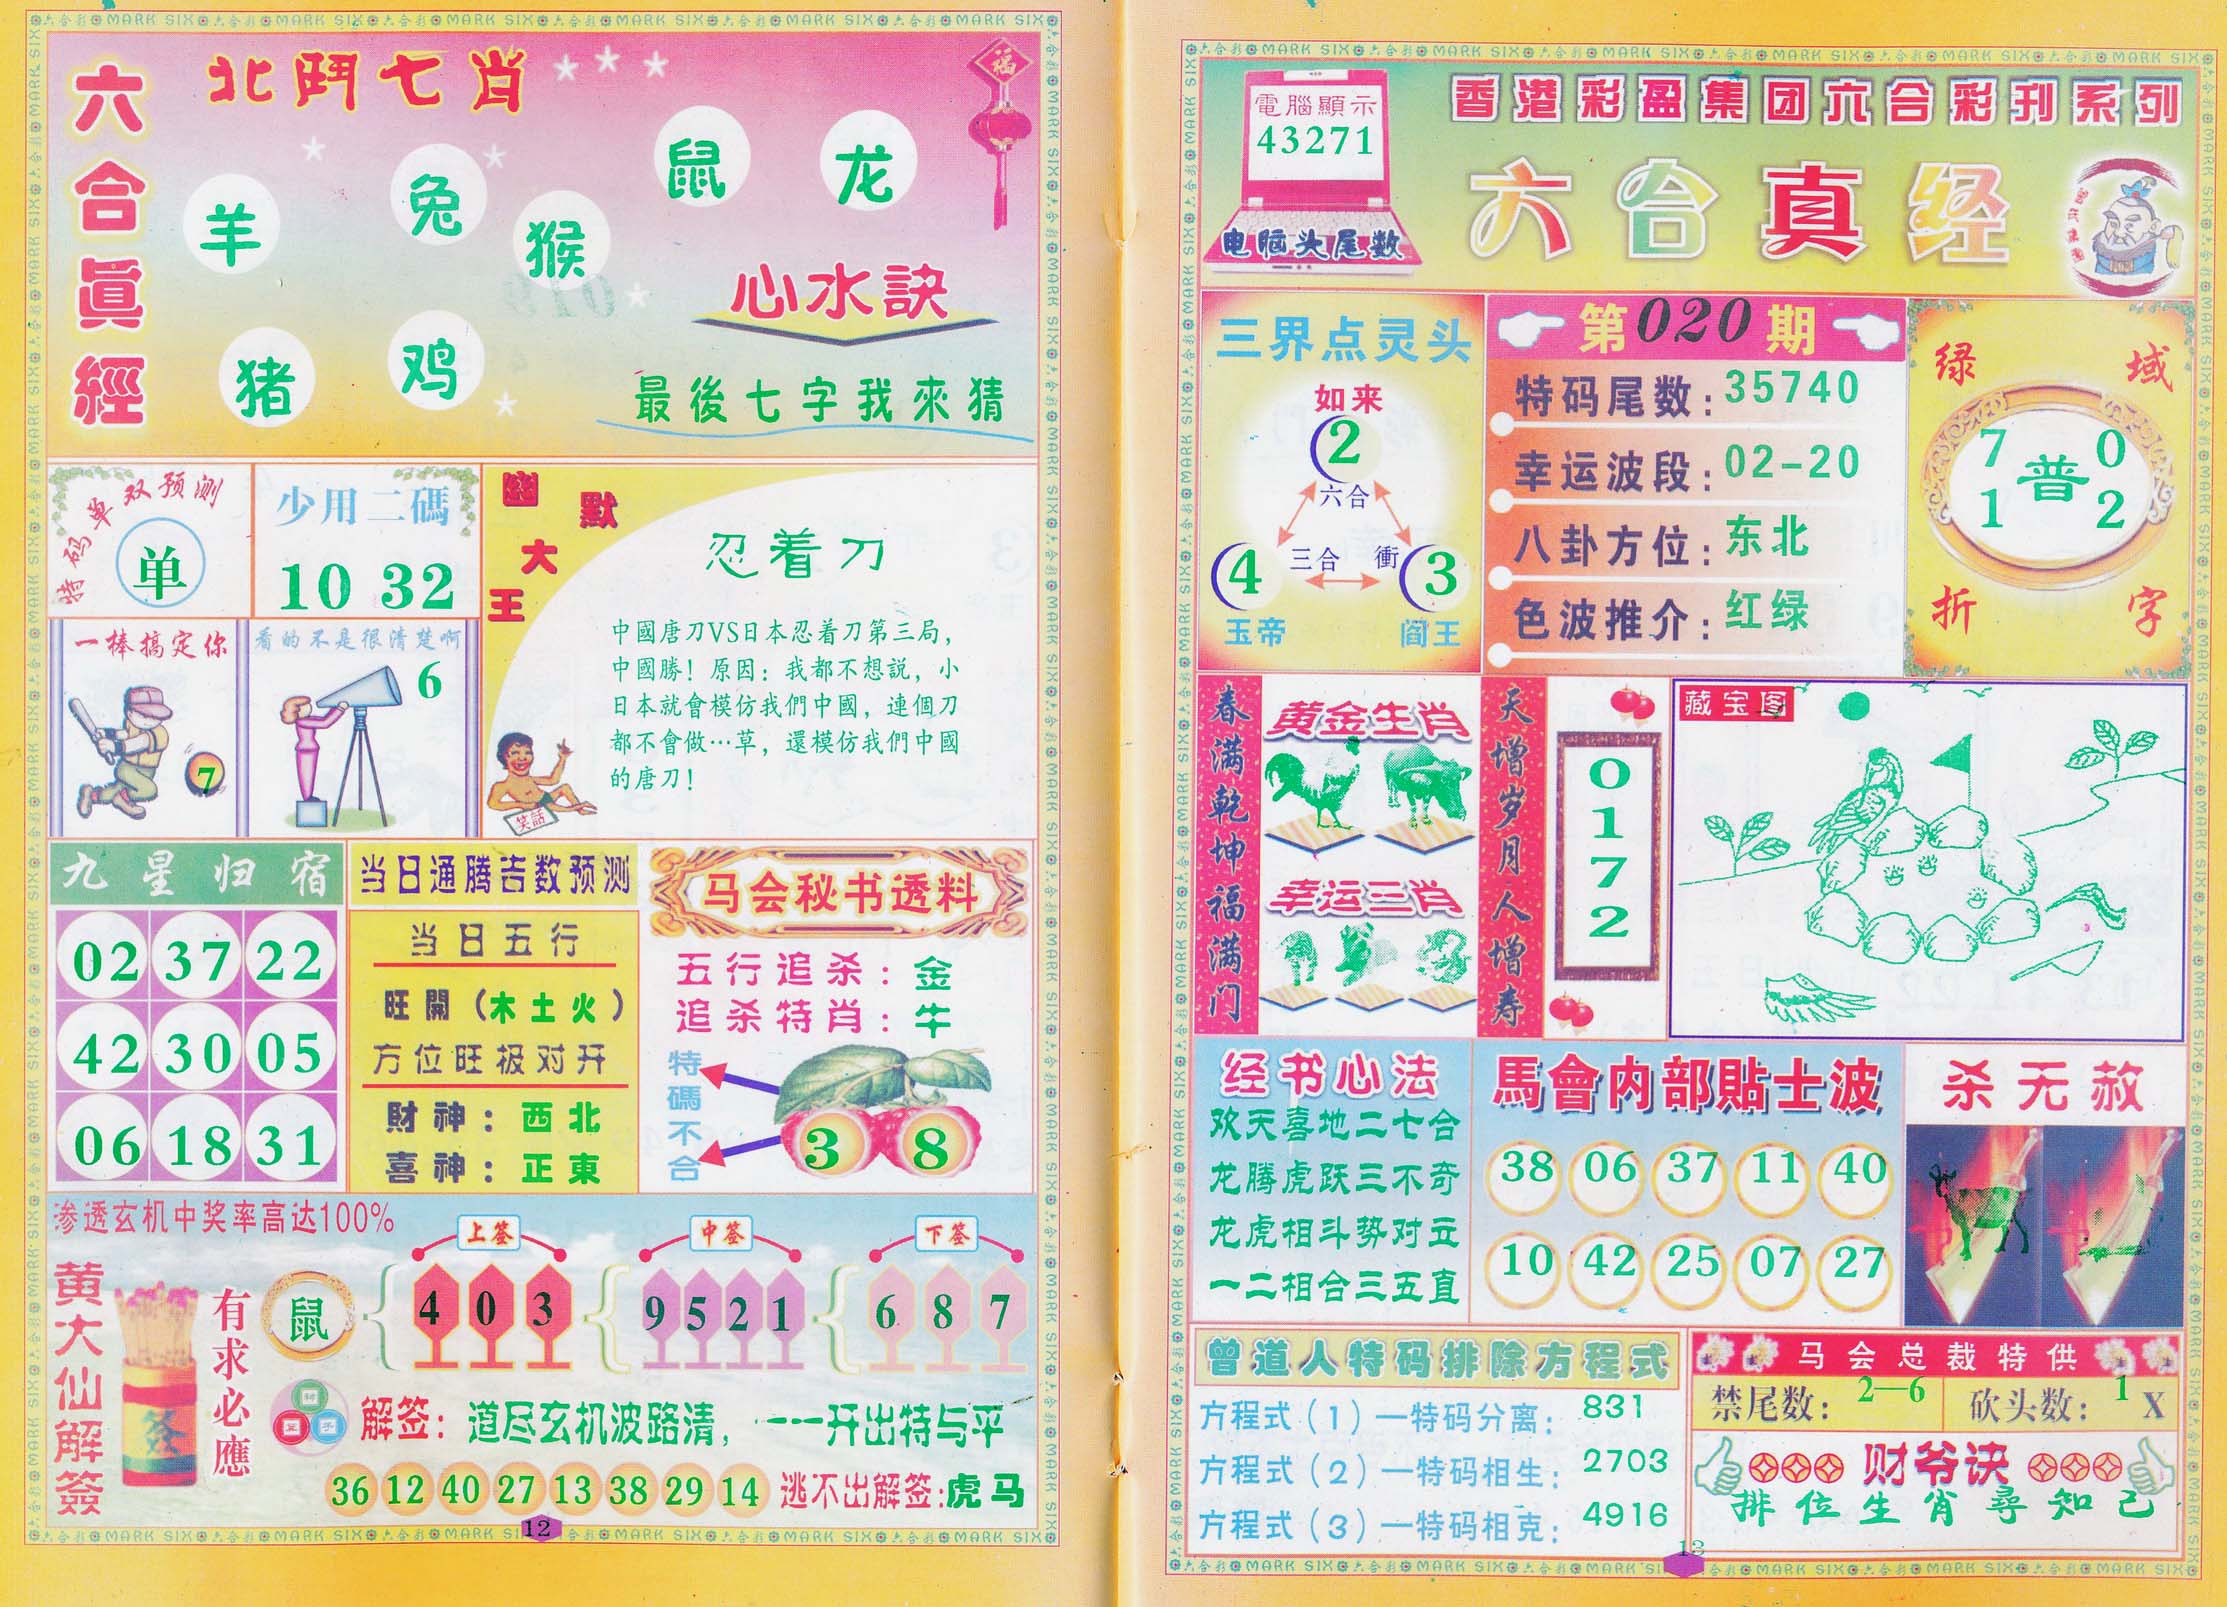 六合眞經
北鬥七肖
羊
兔
猴
鼠
龙
猪
鸡
心水訣
最後七字我來猜
特码单双预测
单
少用二碼
10 32
幽默大王
忍着刀
中國唐刀VS日本忍着刀第三局,
中國勝！原因：我都不想説，小
日本就會模仿我們中國，連個刀
都不會做…草，還模仿我們中國
的唐刀！
笑話
一棒搞定你
7
看的不是很清楚啊
6
九星归宿
02 37 22
42 30 05
06 18 31
当日通腾吉数预测
当日五行
旺開（木土火）
方位旺极对开
財神：西北
喜神：正東
马会秘书透料
五行追杀：金
追杀特肖：牛
特碼不合
3 8
渗透玄机中奖率高达100%
黄大仙解簽
签
有求必應
鼠
上签
4 0 3
中签
9 5 2 1
下签
6 8 7
解签：道尽玄机波路清，一一开出特与平
36 12 40 27 13 38 29 14 逃不出解签:虎马
12
電腦顯示
43271
电脑头尾数
香港彩盈集团六合彩刊系列
六合真经
三界点灵头
如来
2
六合
三合
衝
4
3
玉帝
阎王
第020期
特码尾数：35740
幸运波段：02-20
八卦方位：东北
色波推介：红绿
绿域折字
7 0
普
1 2
春满乾坤福满门
黄金生肖
幸运三肖
天增岁月人增寿
0172
藏宝图
经书心法
欢天喜地二七合
龙腾虎跃三不奇
龙虎相斗势对立
一二相合三五直
馬會内部貼士波
38 06 37 11 40
10 42 25 07 27
杀无赦
曾道人特码排除方程式
方程式（1）—特码分离：831
方程式（2）—特码相生：2703
方程式（3）—特码相克：4916
马会总裁特供
禁尾数：2—6
砍头数：1X
财爷诀
排位生肖尋知己
13